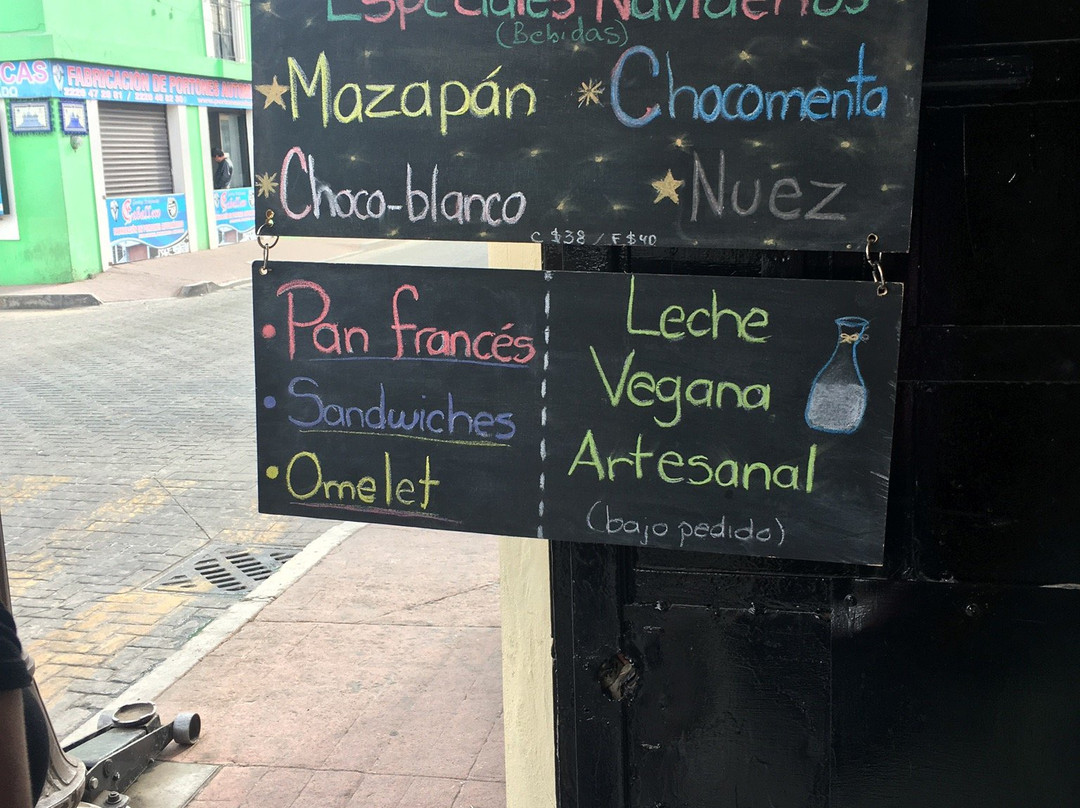 Especiales Navideños
(Bebidas)
Mazapán
Chocomenta
Choco-blanco
Nuez
C $38 / F $40
Pan francés
Sandwiches
Omelet
Leche
Vegana
Artesanal
(bajo pedido)
CAS
FABRICACION DE PORTONES
Caballero